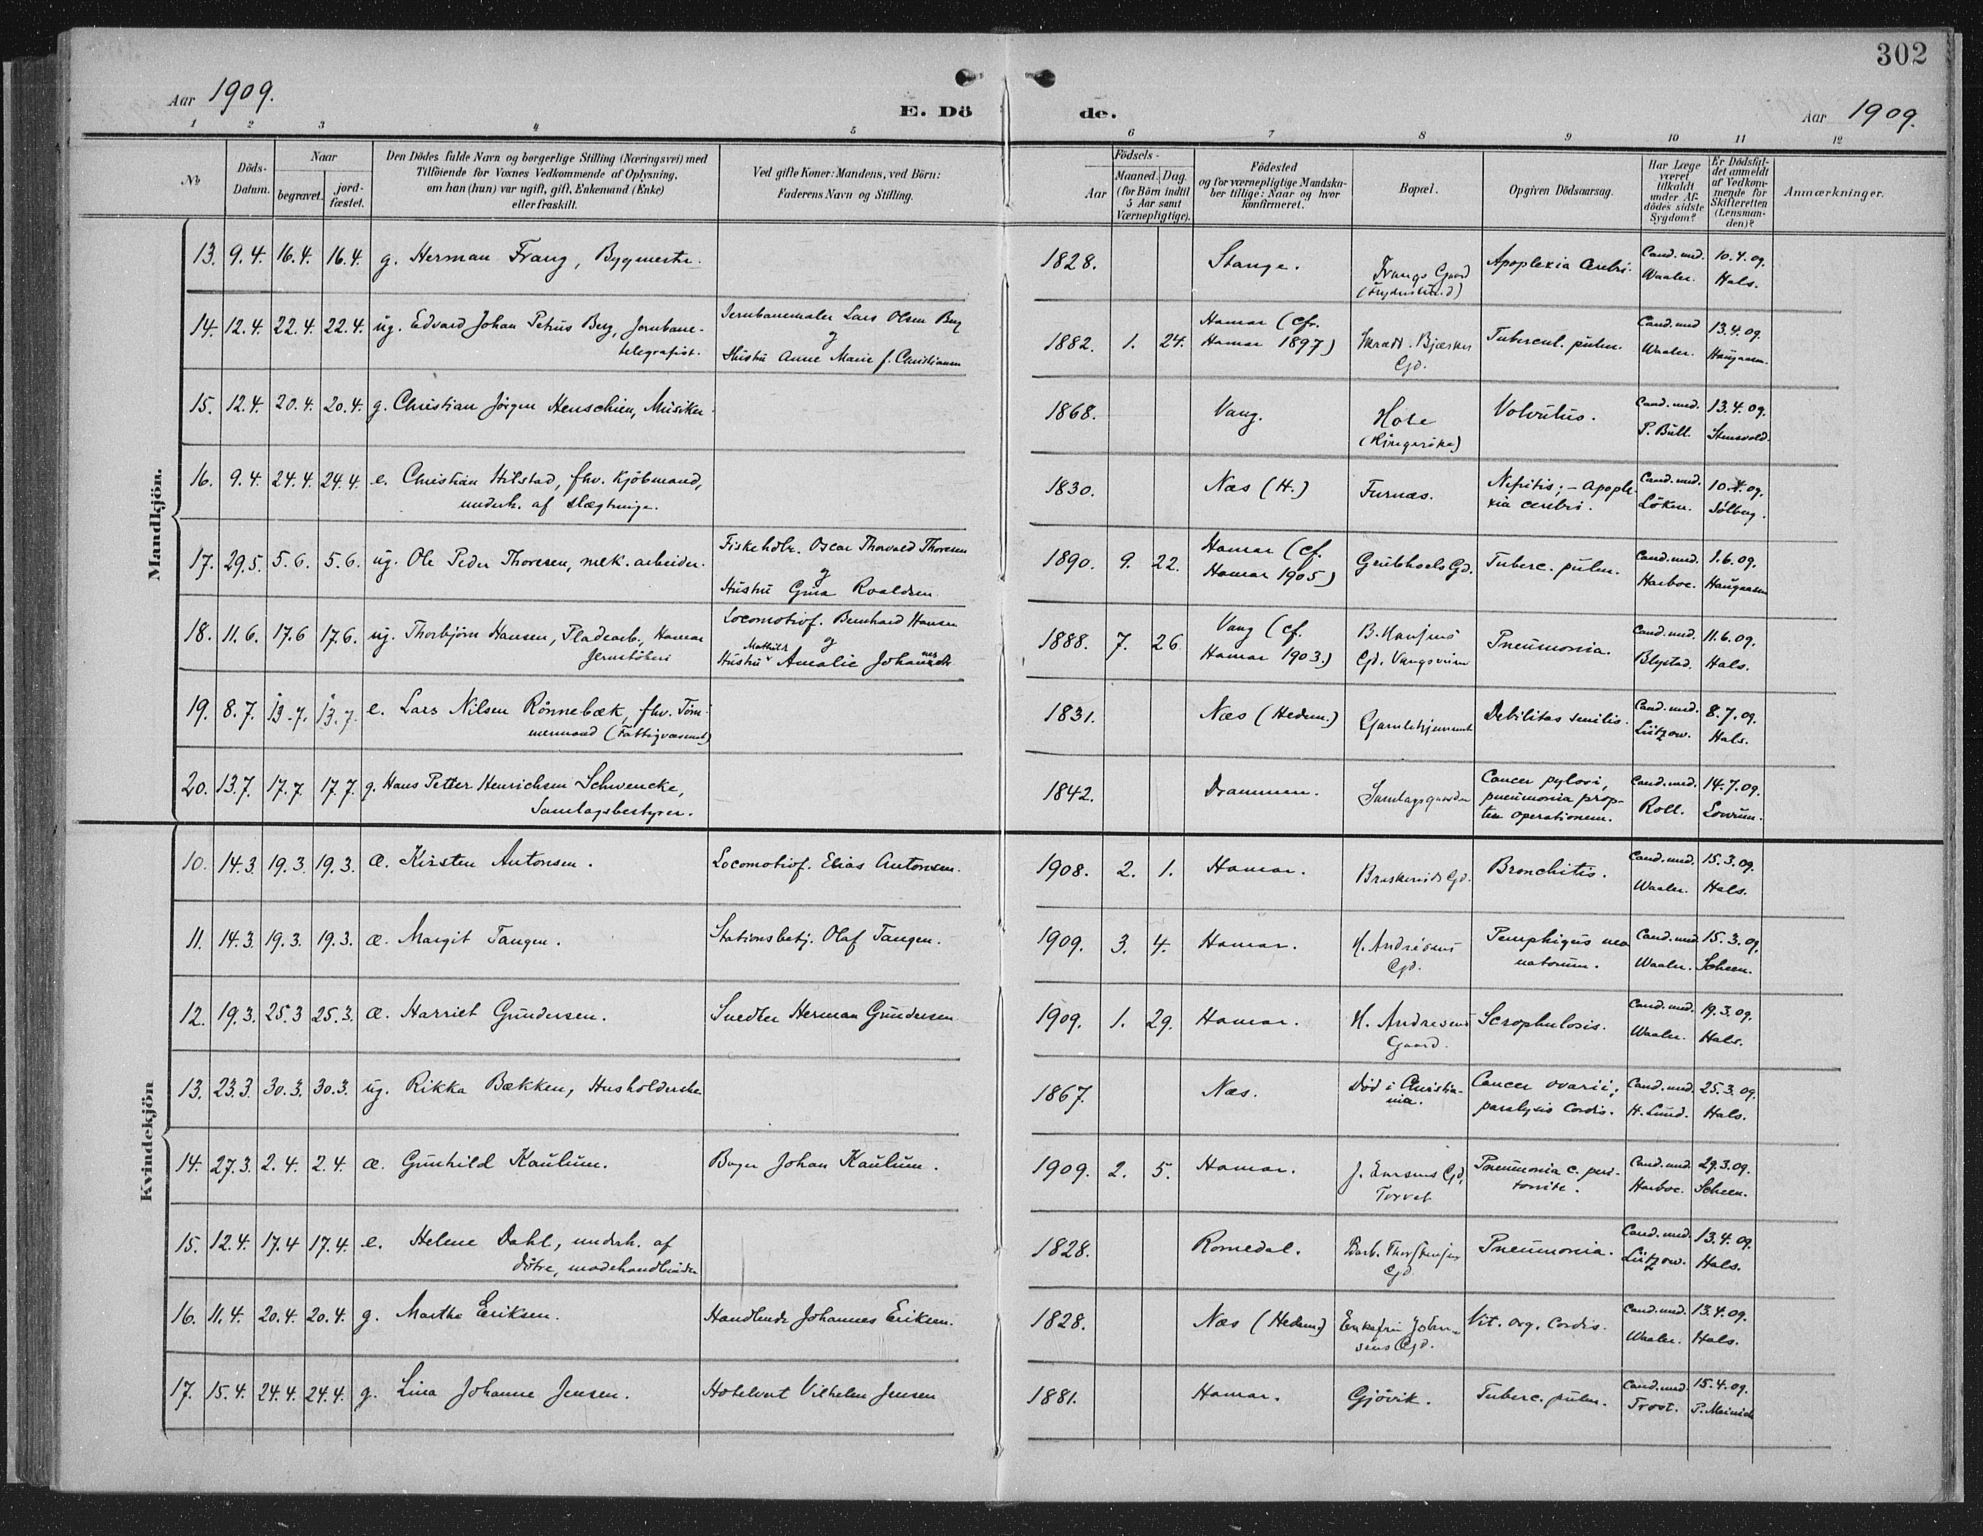 302
Aar 1909.
E. Dö
de.
Aar 1909.
1 2 3 4 5 6 7 8 9 10 11 12
No
Döds-Datum.
Naar
begravet.
jord-fæstet.
Den Dödes fulde Navn og borgerlige Stilling (Næringsvei) med
Tilföiende for Voxnes Vedkommende af Oplysning,
om han (hun) var ugift, gift, Enkemand (Enke)
eller fraskilt.
Ved gifte Koner: Mandens, ved Börn:
Faderens Navn og Stilling.
Födsels-
Aar
Maaned.
Dag.
(for Börn indtil
5 Aar samt
Værnepligtige).
Födested
og for værnepligtige Mandska-
ber tillige: Naar og hvor
konfirmeret.
Bopæl.
Opgiven Dödsaarsag.
Har Læge
været
tilkaldt
under Af-
dödes sidste
Sygdom?
Er Dödsfal-
det anmeldt
af Vedkom-
mende for
Skifteretten
(Lensman-
den)?
Anmærkninger.
Mandkjön.
13. 9.4. 16.4. 16.4. g. Herman Frang, Bygmester. 1828. Stange. Frangs Gaard Apoplexia cerebri. Cand. med. Waaler. 10.4.09. Hals.
14. 12.4. 22.4. 22.4. ug. Edvard Johan Petrus Berg, Jernbane-
telegrafist.
Jernbanemaler Lars Olsen Berg
og
Hustru Anne Marie f. Christiansen
1882. 1. 24. Hamar (cfr.
Hamar 1897)
Gd.
Tubercul. pulm. Cand. med Waaler. 13.4.09. Haugaasen.
15. 12.4. 20.4. 20.4. g. Christian Jörgen Henschien, Musiker. 1868. Vang. Hole
(Ringerike)
Volvulus. Cand. med. P. Bull. 13.4.09. Stensvold.
16. 9.4. 24.4. 24.4. e. Christian Hilstad, fhv. Kjöbmand,
underh. af Slægtninge.
1830. Næs (H.) Furnæs. Nefritis; - Apople-
xia cerebri.
Cand. med. Löken. 10.4.09. Sölberg.
17. 29.5. 5.6. 5.6. ug. Ole Peder Thoresen, mek. arbeider.
Fiskehdlr. Oscar Thorvald Thoresen
og
Hustru Gina Roaldsen.
1890. 9. 22. Hamar (cf.
Hamar 1905)
Gribhoels Gd. Tuberc. pulm. Cand. med. Harboe. 1.6.09. Haugaasen
18. 11.6. 17.6 17.6. ug. Thorbjörn Hansen, Pladearb., Hamar
Jernstöberi
Locomotivf. Bernhard Hansen
og
Hustru Mathilde Amalie Johannesen
1888. 7. 26 Vang (cf.
Hamar 1903.)
B. Hansens
Gd. Vangsveien
Pneumonia. Cand. med. Blystad. 11.6.09. Hals.
19. 8.7. 13.7. 13.7. e. Lars Nilsen Rönnebæk, fhv. Töm-
mermand (Fattigvæsenet)
1831. Næs (Hedem.) Gamlehjemmet Debilitas senilis. Cand. med. Lützow. 8.7.09. Hals.
20. 13.7. 17.7. 17.7. g. Hans Petter Henrichsen Schwencke,
Samlagsbestyrer.
1842. Drammen. Samlagsgaarden Cancer pylori,
pneumonia prop-
ter operationem.
Cand. med. Roll. 14.7.09. Lovrum.
Kvindekjön
10. 14.3. 19.3. 19.3. æ. Kirsten Antonsen. Locomotivf. Elias Antonsen. 1908. 2. 1. Hamar. Braskeruds Gd. Bronchitis. Cand. med. Waaler. 15.3.09. Hals.
11. 14.3. 19.3. 19.3. æ. Margit Tangen. Stationsbetj. Olaf Tangen. 1909. 3. 4. Hamar. H. Andresens
Gd.
Pemphigus neo
natorum.
Cand. med. Waaler. 15.3.09. Scheen.
12. 19.3. 25.3 25.3. æ. Harriet Gundersen. Snedker Herman Gundersen 1909. 1. 29. Hamar. H. Andresens
Gaard.
Scrophulosis. Cand. med. Waaler. 19.3.09. Hals.
13. 23.3. 30.3. 30.3. ug. Rikka Bækken, Husholderske 1867. Næs. Död i Christia-
nia.
Cancer ovarii;
paralysis cordis.
Cand. med. H. Lund. 25.3.09. Hals.
14. 27.3. 2.4. 2.4. æ. Gunhild Kaulum. Bager Johan Kaulum. 1909. 2. 5. Hamar. J. Gd,
Torvet
Pneumonia c. peri-
tonite.
Cand. med. Harboe. 29.3.09. Scheen.
15. 12.4. 17.4 17.4. e. Helene Dahl, underh. af
dötre, modehandlerinder
1828. Romedal. Barb. Thorstensens
Gd
Pneumonia. Cand. med. Lützow. 13.4.09. Hals.
16. 11.4. 20.4. 20.4. g. Marthe Eriksen. Handlende Johannes Eriksen. 1828. Næs (Hedem.) Enkefru Johan-
sens Gd.
Vit. org. cordis. Cand. med. Waaler. 13.4.09. Hals.
17. 15.4. 24.4. 24.4. g. Lina Johanne Jensen. Hotelvert Vilhelm Jensen 1881. Hamar. Gjövik. Tuberc. pulm. Cand. med. Frost. 15.4.09. P. Meinich